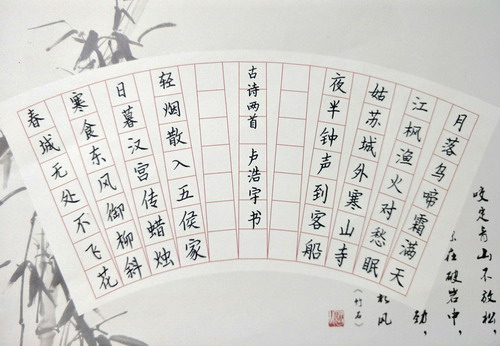 月落乌啼霜满天
江枫渔火对愁眠
姑苏城外寒山寺
夜半钟声到客船
古诗两首 卢浩宇书
春城无处不飞花
寒食东风御柳斜
日暮汉宫传蜡烛
轻烟散入五侯家
咬定青山不放松，
在破岩中，
劲，
风
《竹石》